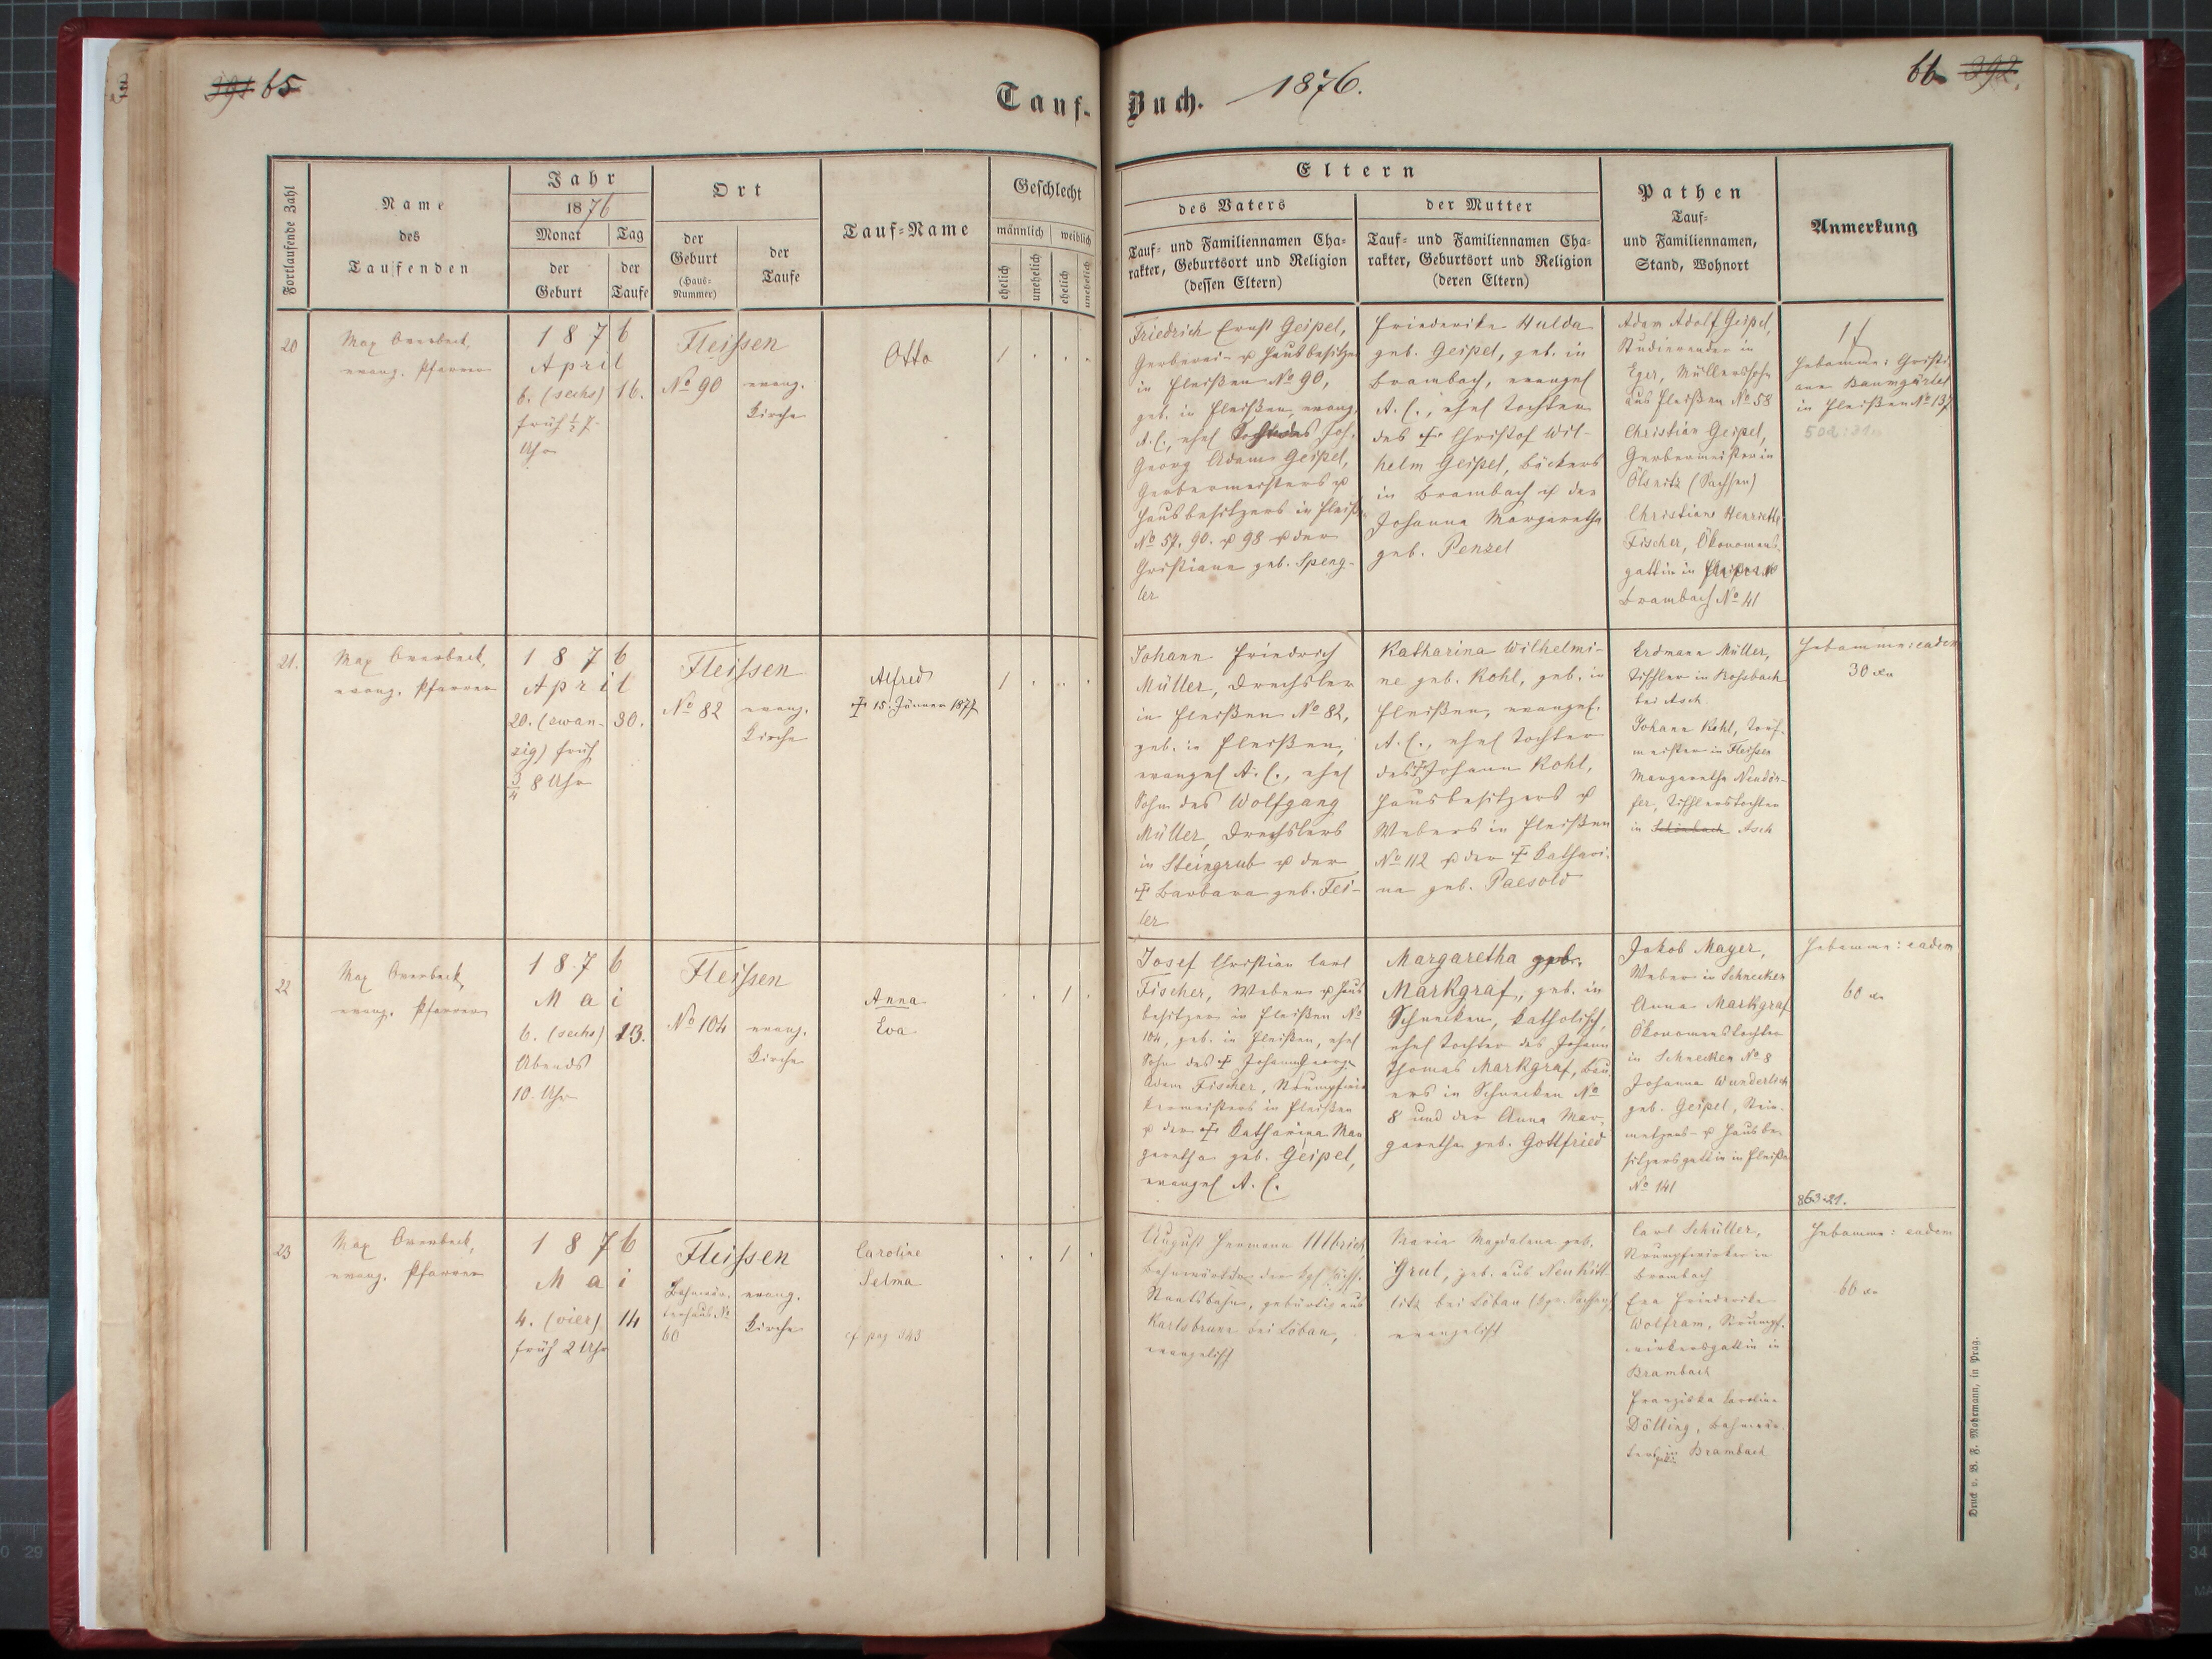 391 65
Tauf-
Buch. 1876.
66 392.
Fortlaufende Zahl
Name
des
Taufenden
Jahr
1876
Monat Tag
der der
Geburt Taufe
Ort
der
Geburt
(Haus-
Nummer)
der
Taufe
Tauf-Name
Geschlecht
männlich weiblich
ehelich unehelich ehelich unehelich
Eltern
des Vaters
Tauf- und Familiennamen Cha-
rakter, Geburtsort und Religion
(dessen Eltern)
der Mutter
Tauf- und Familiennamen Cha-
rakter, Geburtsort und Religion
(deren Eltern)
Pathen
Tauf-
und Familiennamen,
Stand, Wohnort
Anmerkung
20
Max Overbeck,
evang. Pfarrer
1876
April
6. (sechs) 16.
früh ½ 7
Uhr
Fleissen
No 90
evang.
Kirche
Otto
1 . . .
Friedrich Ernst Geipel,
Gerberei- u Hausbesitzer
in Fleißen No 90,
geb. in Fleißen, evang.
A. C., ehel Joh.
Georg Adam Geipel,
Gerbermeisters u
Hausbesitzers in Fleiß.
No 57. 90. u 98 u der
Christiane geb. Speng-
ler
Friederike Hulda
geb. Geipel, geb. in
Brambach, evangel
A. C., ehel Tochter
des † Christof Wil-
helm Geipel, Bäckers
in Brambach u der
Johanna Margaretha
geb. Penzel
Adam Adolf Geipel,
Studierender in
Eger, Müllerssohn
aus Fleißen No 58
Christian Geipel,
Gerbermeister in
Ölsnitz (Sachsen)
Christiane Henriette
Fischer, Ökonomens-
gattin in
Brambach No 41
1 f
Hebamme: Christi-
ane Baumgärtel
in Fleißen No 137
21.
Max Overbeck,
evang. Pfarrer
1876
April
20. (zwan- 30.
zig) früh
¾ 8 Uhr
Fleissen
No 82
evang.
Kirche
Alfred
† 15. Jänner 1877
1 . . .
Johann Friedrich
Müller, Drechsler
in Fleißen No 82,
geb. in Fleißen,
evangel A. C., ehel
Sohn des Wolfgang
Müller, Drechslers
in Steingrub u der
† Barbara geb. Fei-
ler
Katharina Wilhelmi-
ne geb. Kohl, geb. in
Fleißen, evangel.
A. C., ehel Tochter
des † Johann Kohl,
Hausbesitzers u
Webers in Fleißen
No 112 u der † Kathari-
na geb. Paesold
Erdmann Müller,
Tischler in Rossbach
bei Asch.
Johann Kohl, Torf-
meister in Fleissen
Margaretha Neudör-
fer, Tischlerstochter
in Schönbach Asch
Hebamme: eadem
30 xr
22
Max Overbeck,
evang. Pfarrer
1876
Mai
6. (sechs) 13.
Abends
10 Uhr
Fleissen
No 104
evang.
Kirche
Anna
Eva
. . 1 .
Josef Christian Carl
Fischer, Weber u Haus
besitzer in Fleißen No
104, geb. in Fleißen, ehel
Sohn des † Johann Georg
Adam Fischer, Strumpfwir
kermeisters in Fleißen
u der † Katharina Mar
garetha geb. Geipel,
evangel A. C.
Margaretha geb.
Markgraf, geb. in
Schnecken, katholisch,
ehel Tochter des Johann
Thomas Markgraf, Bau
ers in Schnecken No
8 und der Anna Mar-
garetha geb. Gottfried
Jakob Mayer,
Weber in Schnecken
Anna Markgraf
Ökonomenstochter
in Schnecken No 8
Johanna Wunderlich
geb. Geipel, Stein-
metzens- u Hausbe-
sitzersgattin in Fleißen
No 141
Hebamme: eadem
60 xr
863.21.
23
Max Overbeck,
evang. Pfarrer
1876
Mai
4. (vier) 14
früh 2 Uhr
Fleissen
Bahnwär-
terhaus No
60
evang.
Kirche
Caroline
Selma
cf pag 343
. . 1 .
August Hermann Ullbrich
Bahnwärter der kgl. sächs.
Staatsbahn, gebürtig aus
Karlsbrunn bei Löbau,
evangelisch
Maria Magdalena geb.
Grul, geb. aus Neu Kitt
litz bei Löbau (Kgr. Sachsen)
evangelisch
Carl Schüller,
Strumpfwirker in
Brambach
Eva Friederike
Wolfram, Strumpf-
wirkersgattin in
Brambach
Franziska Caroline
Dölling, Bahnwär-
ters in Brambach
Hebamme: eadem
60 xr
Druck v. B. F. Mohrmann, in Prag.